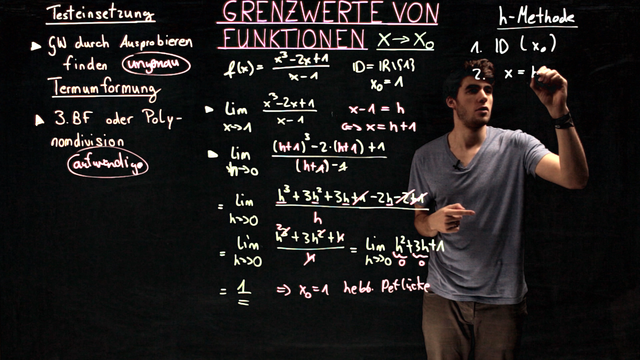 Testeinsetzung
▸ GW durch Ausprobieren
finden ungenau
Termumformung
▸ 3.BF oder Poly-
nomdivision
aufwendige
GRENZWERTE VON
FUNKTIONEN x→x₀
f(x) = (x³-2x+1)/(x-1) ID = IR\{1}
x₀ = 1
▸ lim x→1 (x³-2x+1)/(x-1) x-1 = h
⇔ x = h+1
▸ lim h→0 ((h+1)³-2·(h+1)+1)/((h+1)-1)
= lim h→0 (h³+3h²+3h+1-2h-2+1)/h
= lim h→0 (h³+3h²+h)/h = lim h→0 h²+3h+1
0 0
= 1 ⇒ x₀=1 hebb. Deflücke
h-Methode
1. ID (x₀)
2. x = h